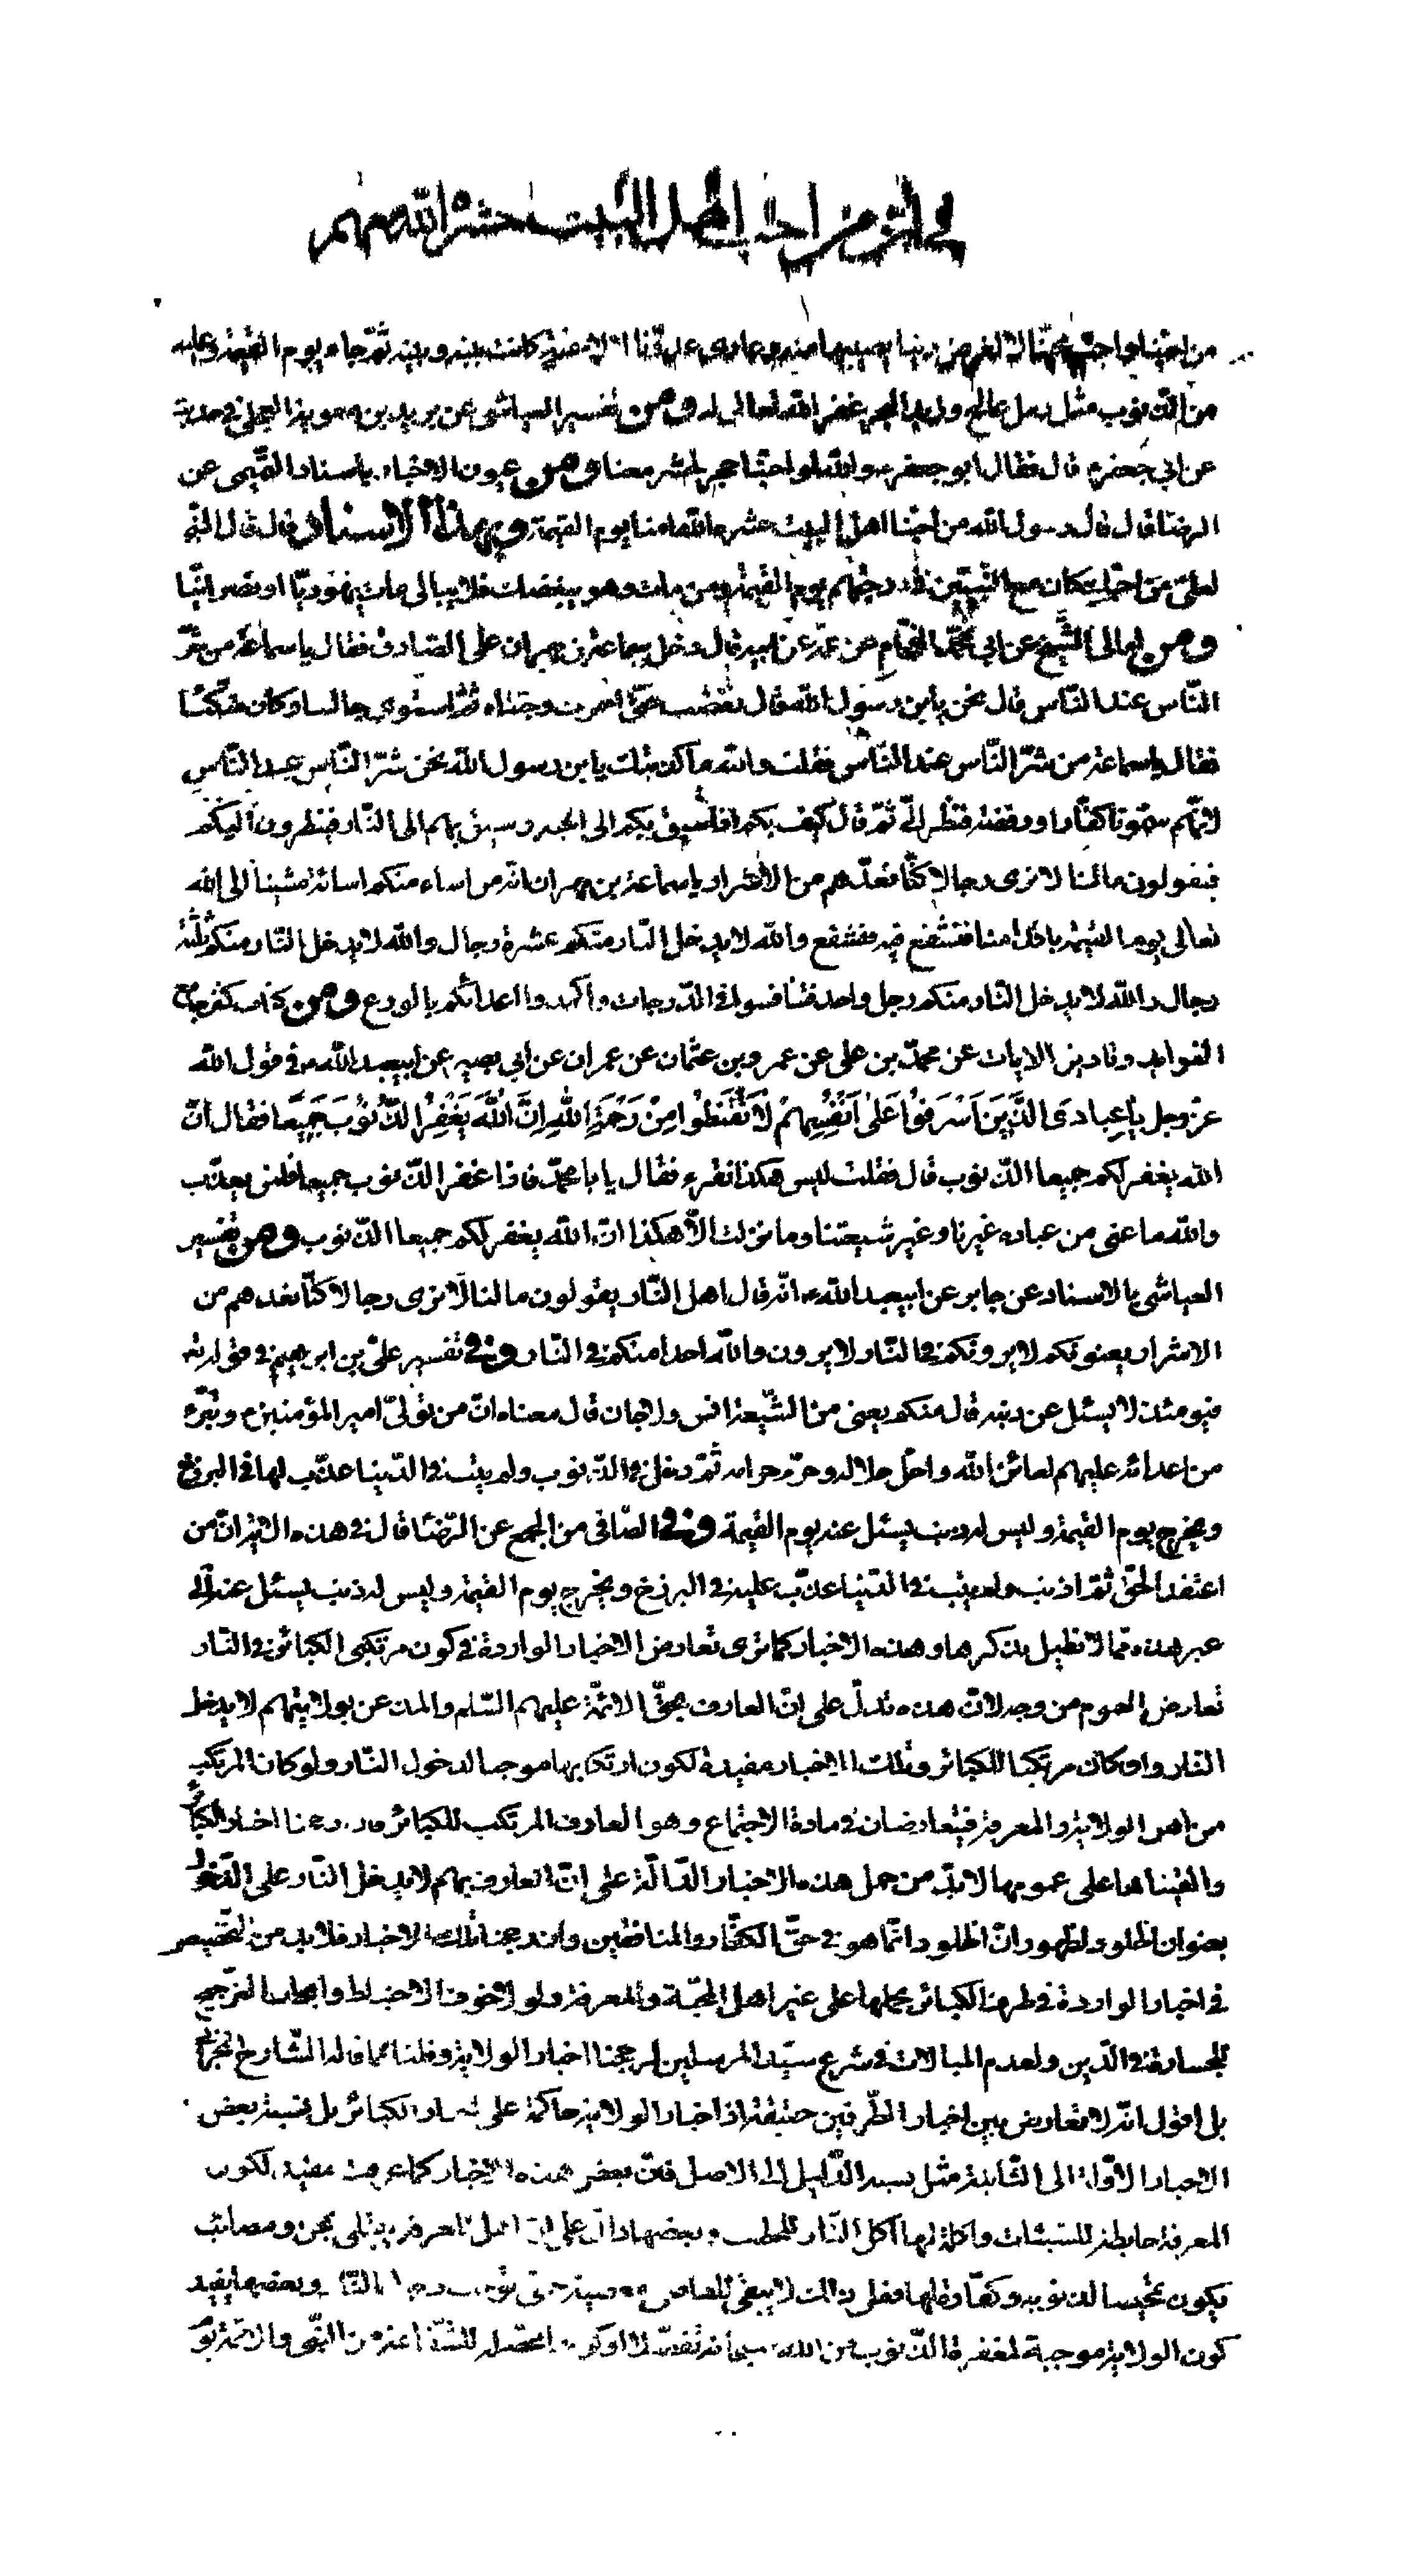 في أنّ من احبّ اهل البيت حشره الله معهم
من احبّنا واحبّ محبّنا لا لغرض دنيا يصيبها منه وعادى عدوّنا لا لاحنة كانت بينه وبينه ثمّ جاء يوم القيمة وعليه
من الذّنوب مثل رمل عالج وزبد البحر غفر الله تعالى له ومن تفسير العياشي عن بريد بن معوية العجلي في حديث
عن ابي جعفر قال فقال ابو جعفر والله لو احبّنا حجر لحشر معنا ومن عيون الاخبار باسناد التّميمي عن
الرضا قال قال رسول الله من احبّنا اهل البيت حشره الله امنا يوم القيمة وبهذا الاسناد قال قال النّبي
لعليّ من احبّك كان مع النّبيّين في درجتهم يوم القيمة ومن مات وهو يبغضك فلا يبالى مات يهوديّا او نصرانيّا
ومن امالى الشّيخ عن ابي محمّد الفحّام عن عمّه عن ابيه قال دخل سماعة بن مهران على الصّادق فقال يا سماعة من شرّ
النّاس عند النّاس قال نحن يا بن رسول الله قال فغضب حتّى احمرت وجنتاه ثمّ استوى جالسا وكان متّكئا
فقال يا سماعة من شرّ النّاس عند النّاس فقلت والله ما كذبتك يا بن رسول الله نحن شرّ النّاس عند النّاس
لانّهم سمّونا كفّارا ورفضة فنظر الىّ ثمّ قال كيف بكم اذا سيق بكم الى الجنة وسيق بهم الى النّار فينظرون اليكم
فيقولون ما لنا لا نرى رجالا كنّا نعدّهم من الاشرار يا سماعة بن مهران انّه من اساء منكم اسائة مشينا الى الله
تعالى يوم القيمة باقدامنا فنشفع فيه فنشفع والله لا يدخل النّار منكم عشرة رجال والله لا يدخل النّار منكم ثلثة
رجال والله لا يدخل النّار منكم رجل واحد فتنافسوا في الدّرجات واكمدوا اعدائكم بالورع ومن كتاب كنز جامع
الفوايد وتاويل الايات عن محمّد بن علي عن عمرو بن عثمان عن عمران عن ابي بصير عن ابيعبد الله في قول الله
عزّ وجل يا عِبادىَ الَّذينَ اَسْرَفُوا عَلىٰ اَنْفُسِهِمْ لا تَقْنَطُوا مِنْ رَحْمَةِ اللهِ اِنَّ اللهَ يَغْفِرُ الذُّنُوبَ جَميعًا فقال انّ
الله يغفر لكم جميعا الذّنوب قال فقلت ليس هكذا نقرء فقال يا با محمّد فاذا غفر الذّنوب جميعا فلمن يعذّب
والله ما عنى من عباده غيرنا وغير شيعتنا وما نزلت الّا هكذا انّ الله يغفر لكم جميعا الذّنوب ومن تفسير
العياشي بالاسناد عن جابر عن ابيعبد الله انّه قال اهل النّار يقولون ما لنا لا نرى رجالا كنّا نعدهم من
الاشرار يعنونكم لا يرونكم في النّار لا يرون والله احدا منكم في النّار وفي تفسير عليّ بن ابرهيم في قوله تع
فيومئذ لا يسئل عن ذنبه قال منكم يعنى من الشّيعة انس ولا جان قال معناه انّ من تولّى امير المؤمنين وتبرّء
من اعدائه عليهم لعائن الله واحلّ حلاله وحرّم حرامه ثمّ دخل في الذّنوب ولم يتب في الدّنيا عذّب لها في البرزخ
ويخرج يوم القيمة وليس له ذنب يسئل عنه يوم القيمة وفي الصّافي من المجمع عن الرّضا قال في هذه الاية انّ من
اعتقد الحقّ ثمّ اذنب ولم يتب في الدّنيا عذّب عليه في البرزخ ويخرج يوم القيمة وليس له ذنب يسئل عنه الى
غير هذه ممّا لا نطيل بذكرها وهذه الاخبار كما ترى تعارض الاخبار الواردة في كون مرتكبى الكبائر في النّار
تعارض العموم من وجه لانّ هذه تدلّ على انّ العارف بحقّ الائمّة عليهم السّلم والمذعن بولايتهم لا يدخل
النّار وان كان مرتكبا للكبائر وتلك الاخبار مفيدة لكون ارتكابها موجبا لدخول النّار ولو كان المرتكب
من اهل الولاية والمعرفة فيتعارضان في مادة الاجتماع وهو العارف المرتكب للكبائر فان رجّحنا اخبار الكبائر
وابقيناها على عمومها لا بدّ من حمل هذه الاخبار الدّالّة على انّ العارف بهم لا يدخل النّار على الدّخول
بعنوان الخلود لظهور انّ الخلود انّما هو في حقّ الكفّار والمنافقين وان رجحنا تلك الاخبار فلا بد من التّخصيص
في اخبار الواردة في طرف الكبائر بحملها على غير اهل المحبّة والمعرفة ولولا خوف الاختلاط وايجاب التّرجيح
للجسارة في الدّين ولعدم المبالات في شرع سيّد المرسلين لرجحنا اخبار الولاية وقلنا بما قاله الشّارح
بل اقول انّه لا تعارض بين اخبار الطّرفين حقيقة اذ اخبار الولاية حاكمة على اخبار الكبائر بل نسبة بعض
الاخبار الاولى الى الثّانية مثل نسبة الدّليل الى الاصل فانّ بعض هذه الاخبار كما عرفت مفيد لكون
المعرفة حابطة للسّيئات واكلة لها اكل النّار للحطب وبعضها دالّ على انّ اهل المعرفة يبتلى بمحن ومصائب
يكون تمحيصا لذنوبه وكفّارة لها فعلى ذلك لا يبقى للعاصي معصية حتّى توجب دخول النّار وبعضها يفيد
كون الولاية موجبة لمغفرة الذّنوب من الله تفضّلا او لشفاعة من النّبي والائمّة